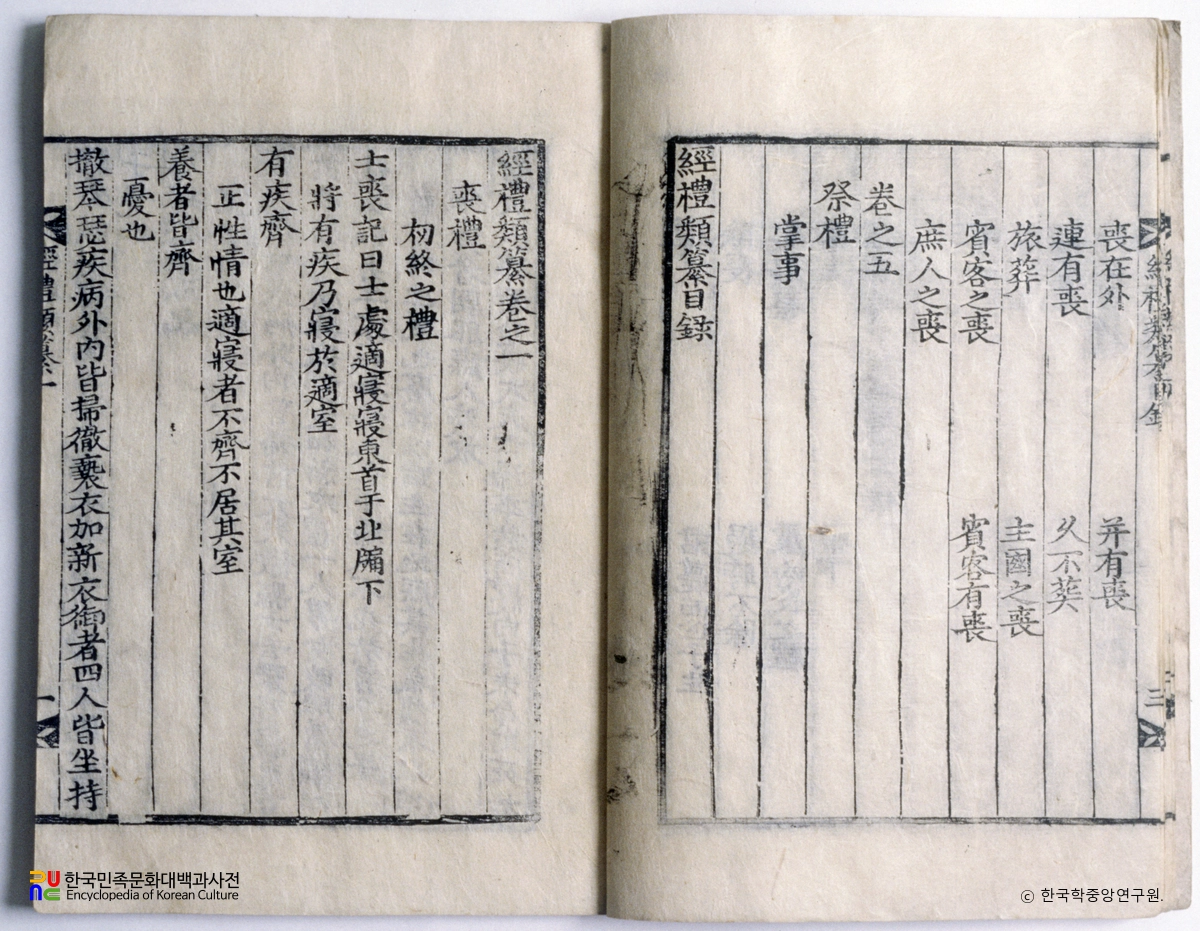 經禮類纂目錄 三
喪在外 并有喪
連有喪 久不葬
旅葬 主國之喪
賓客之喪 賓客有喪
庶人之喪
卷之五
祭禮
掌事
經禮類纂目錄
經禮類纂卷之一
喪禮
初終之禮
士喪記曰士處適寢寢東首于北牖下
將有疾乃寢於適室
有疾齊
正性情也適寢者不齊不居其室
養者皆齊
憂也
撤琴瑟疾病外內皆掃徹褻衣加新衣御者四人皆坐持
經禮類纂一 一
한국민족문화대백과사전
Encyclopedia of Korean Culture
ⓒ 한국학중앙연구원.